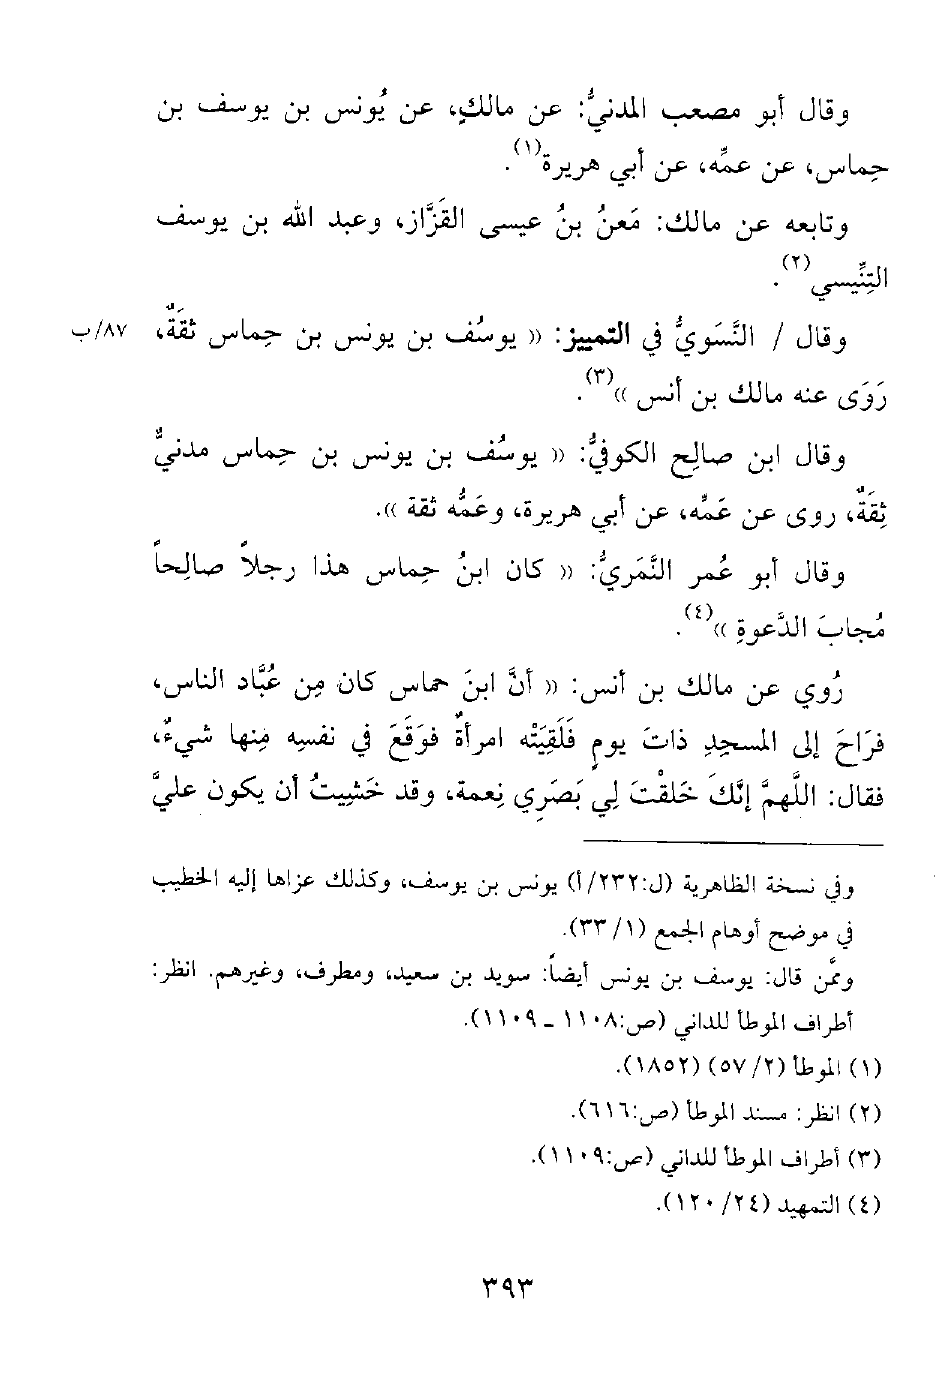 وقال أبو مصعب المدنيُّ: عن مالكٍ، عن يُونس بن يوسف بن
حماس، عن عمِّه، عن أبي هريرة(١).
وتابعه عن مالك: مَعنُ بنُ عيسى القَزَّاز، وعبد الله بن يوسف
التِنِّيسي(٢).
وقال / النَّسَوِيُّ في التمييز: « يوسُف بن يونس بن حِماس ثقَةٌ، ٨٧/ب
رَوَى عنه مالك بن أنس »(٣).
وقال ابن صالِح الكوفيُّ: « يوسُف بن يونس بن حِماس مدنيٌّ
ثِقَةٌ، روى عن عَمِّه، عن أبي هريرة، وعَمُّه ثقة ».
وقال أبو عُمر النَّمَريُّ: « كان ابنُ حِماس هذا رجلاً صالِحاً
مُجابَ الدَّعوةِ »(٤).
رُوي عن مالك بن أنس: « أنَّ ابنَ حماس كان مِن عُبَّاد الناس،
فرَاحَ إلى المسجدِ ذاتَ يومٍ فَلَقِيَتْه امرأةٌ فوَقَعَ في نفسِه مِنها شيءٌ،
فقال: اللَّهمَّ إنَّكَ خَلقْتَ لِي بَصَرِي نِعمة، وقد خَشِيتُ أن يكون عليَّ
وفي نسخة الظاهرية (ل:٢٣٢/أ) يونس بن يوسف، وكذلك عزاها إليه الخطيب
في موضح أوهام الجمع (٣٣/١).
وممَّن قال: يوسف بن يونس أيضاً: سويد بن سعيد، ومطرف، وغيرهم. انظر:
أطراف الموطأ للداني (ص:١١٠٨ ـ ١١٠٩).
(١) الموطأ (٥٧/٢) (١٨٥٢).
(٢) انظر: مسند الموطأ (ص:٦١٦).
(٣) أطراف الموطأ للداني (ص:١١٠٩).
(٤) التمهيد (١٢٠/٢٤).
٣٩٣